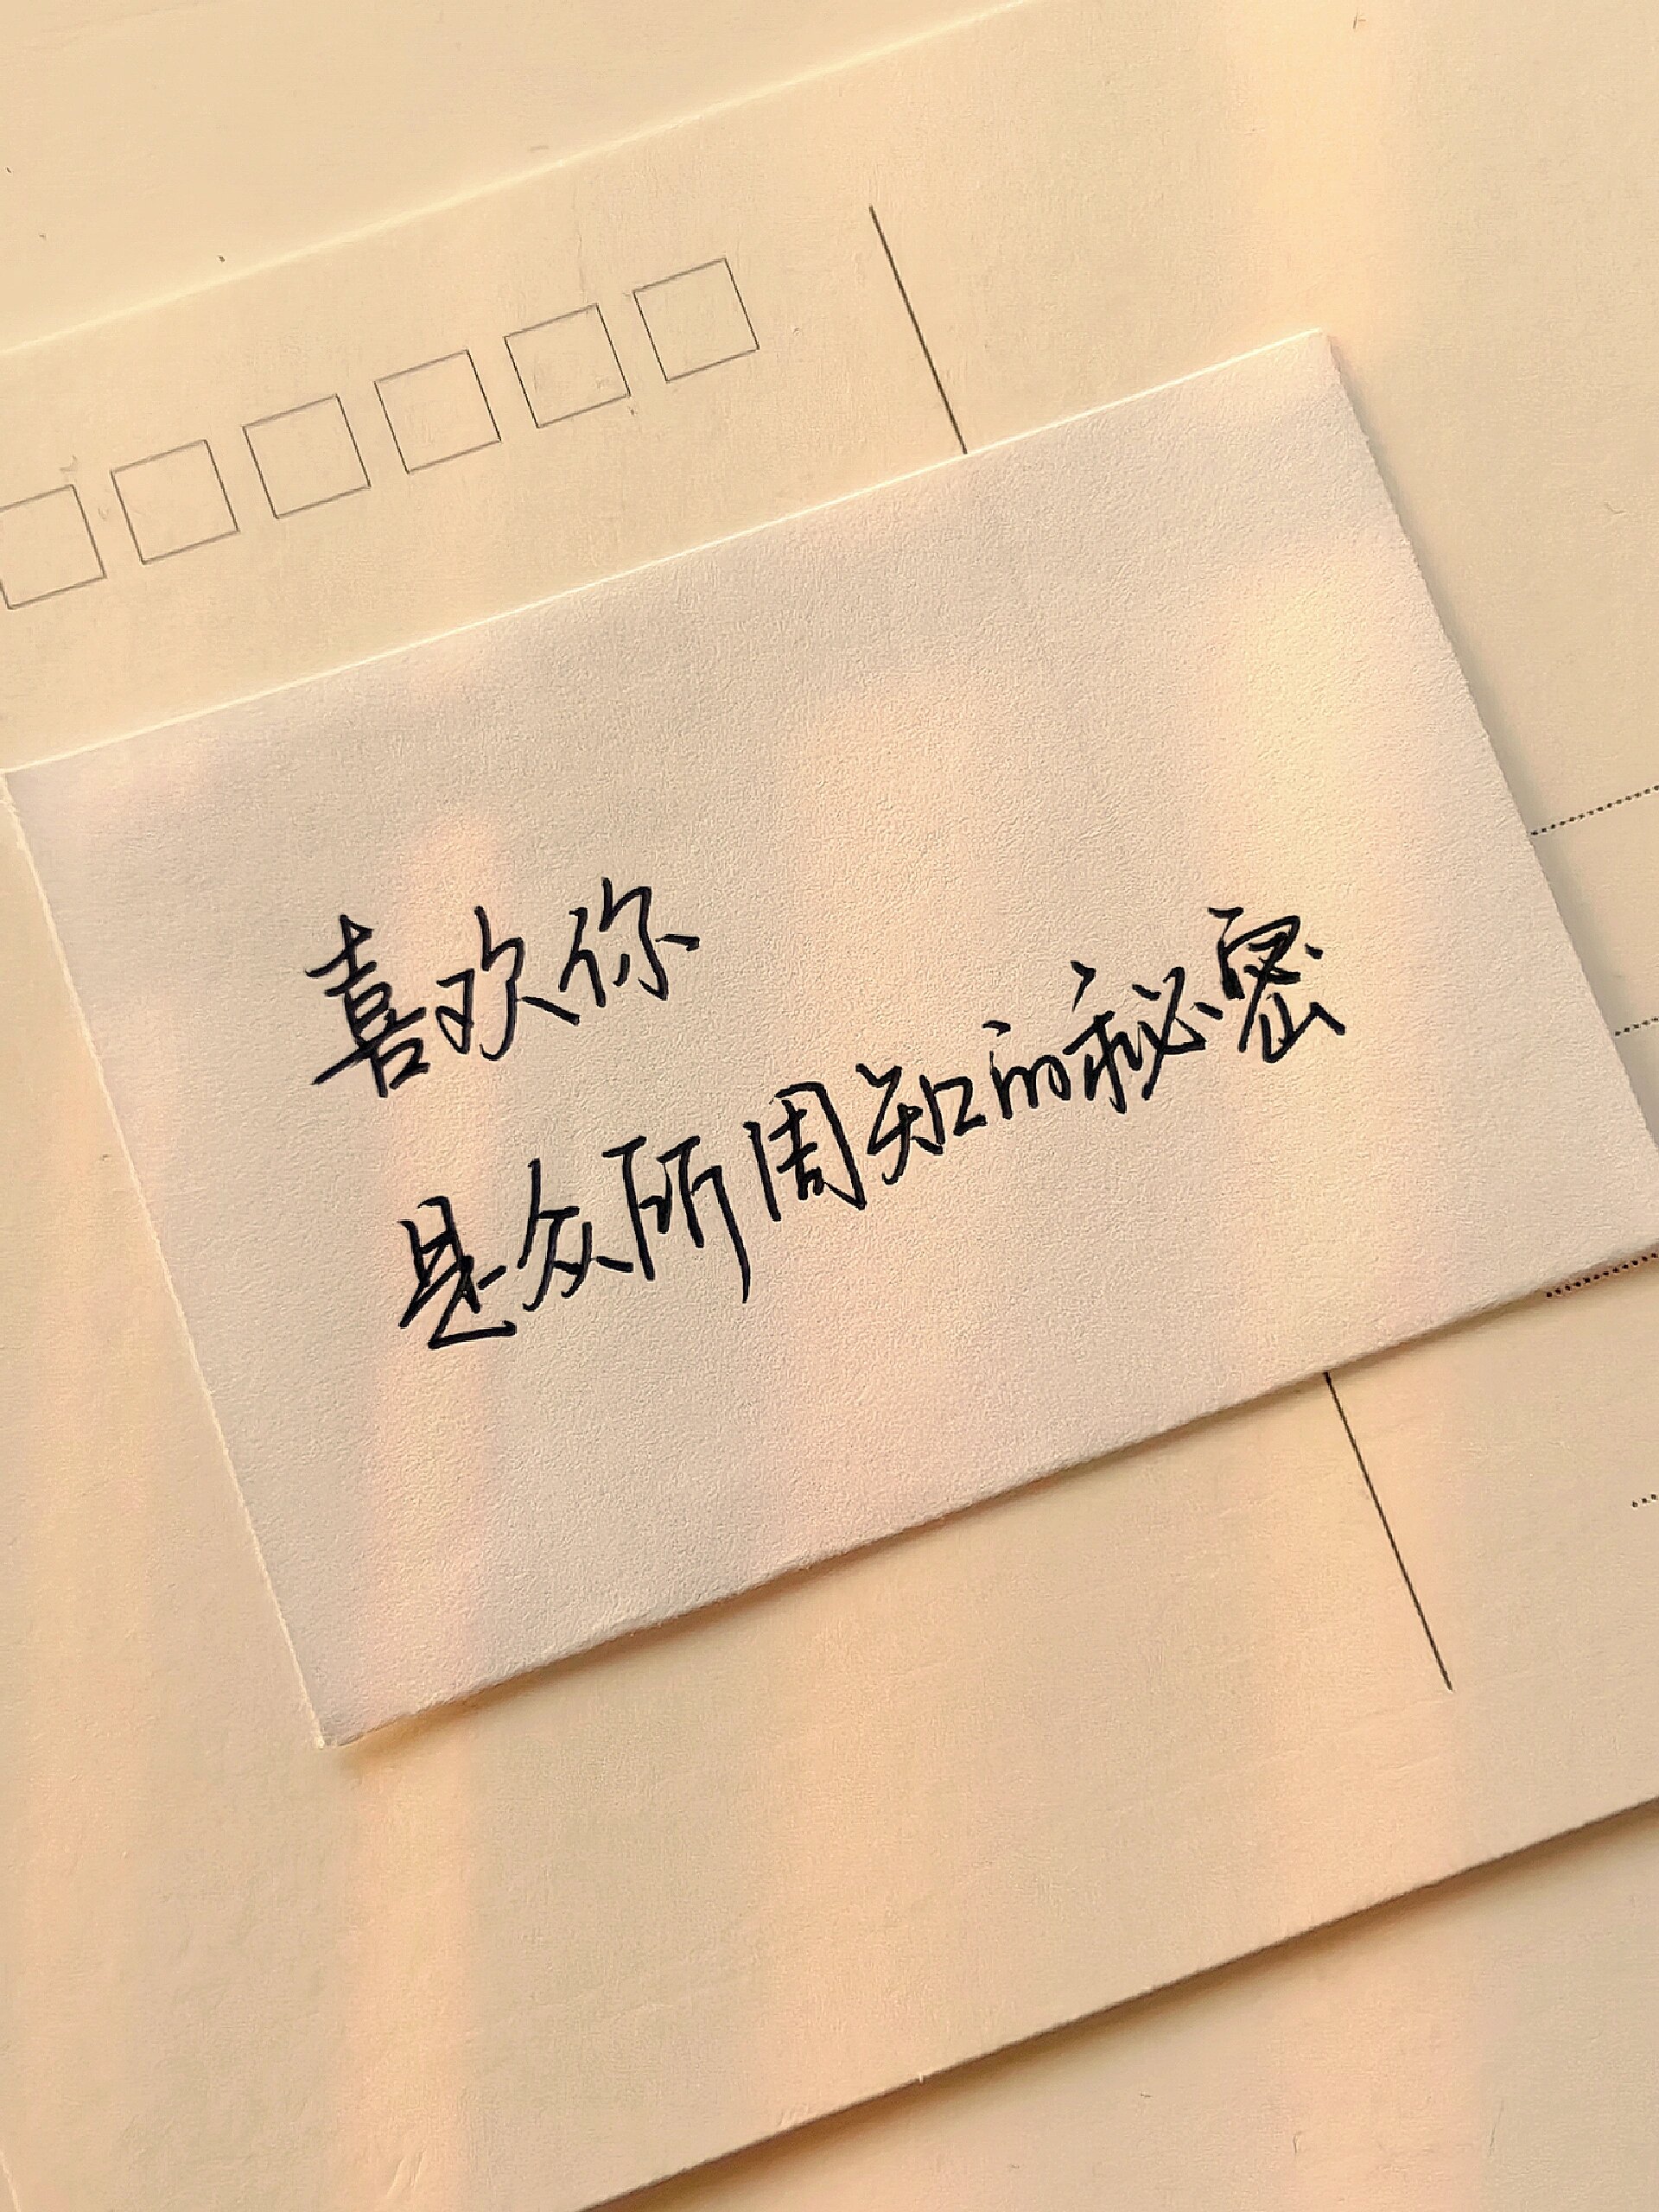 喜欢你
是众所周知的秘密